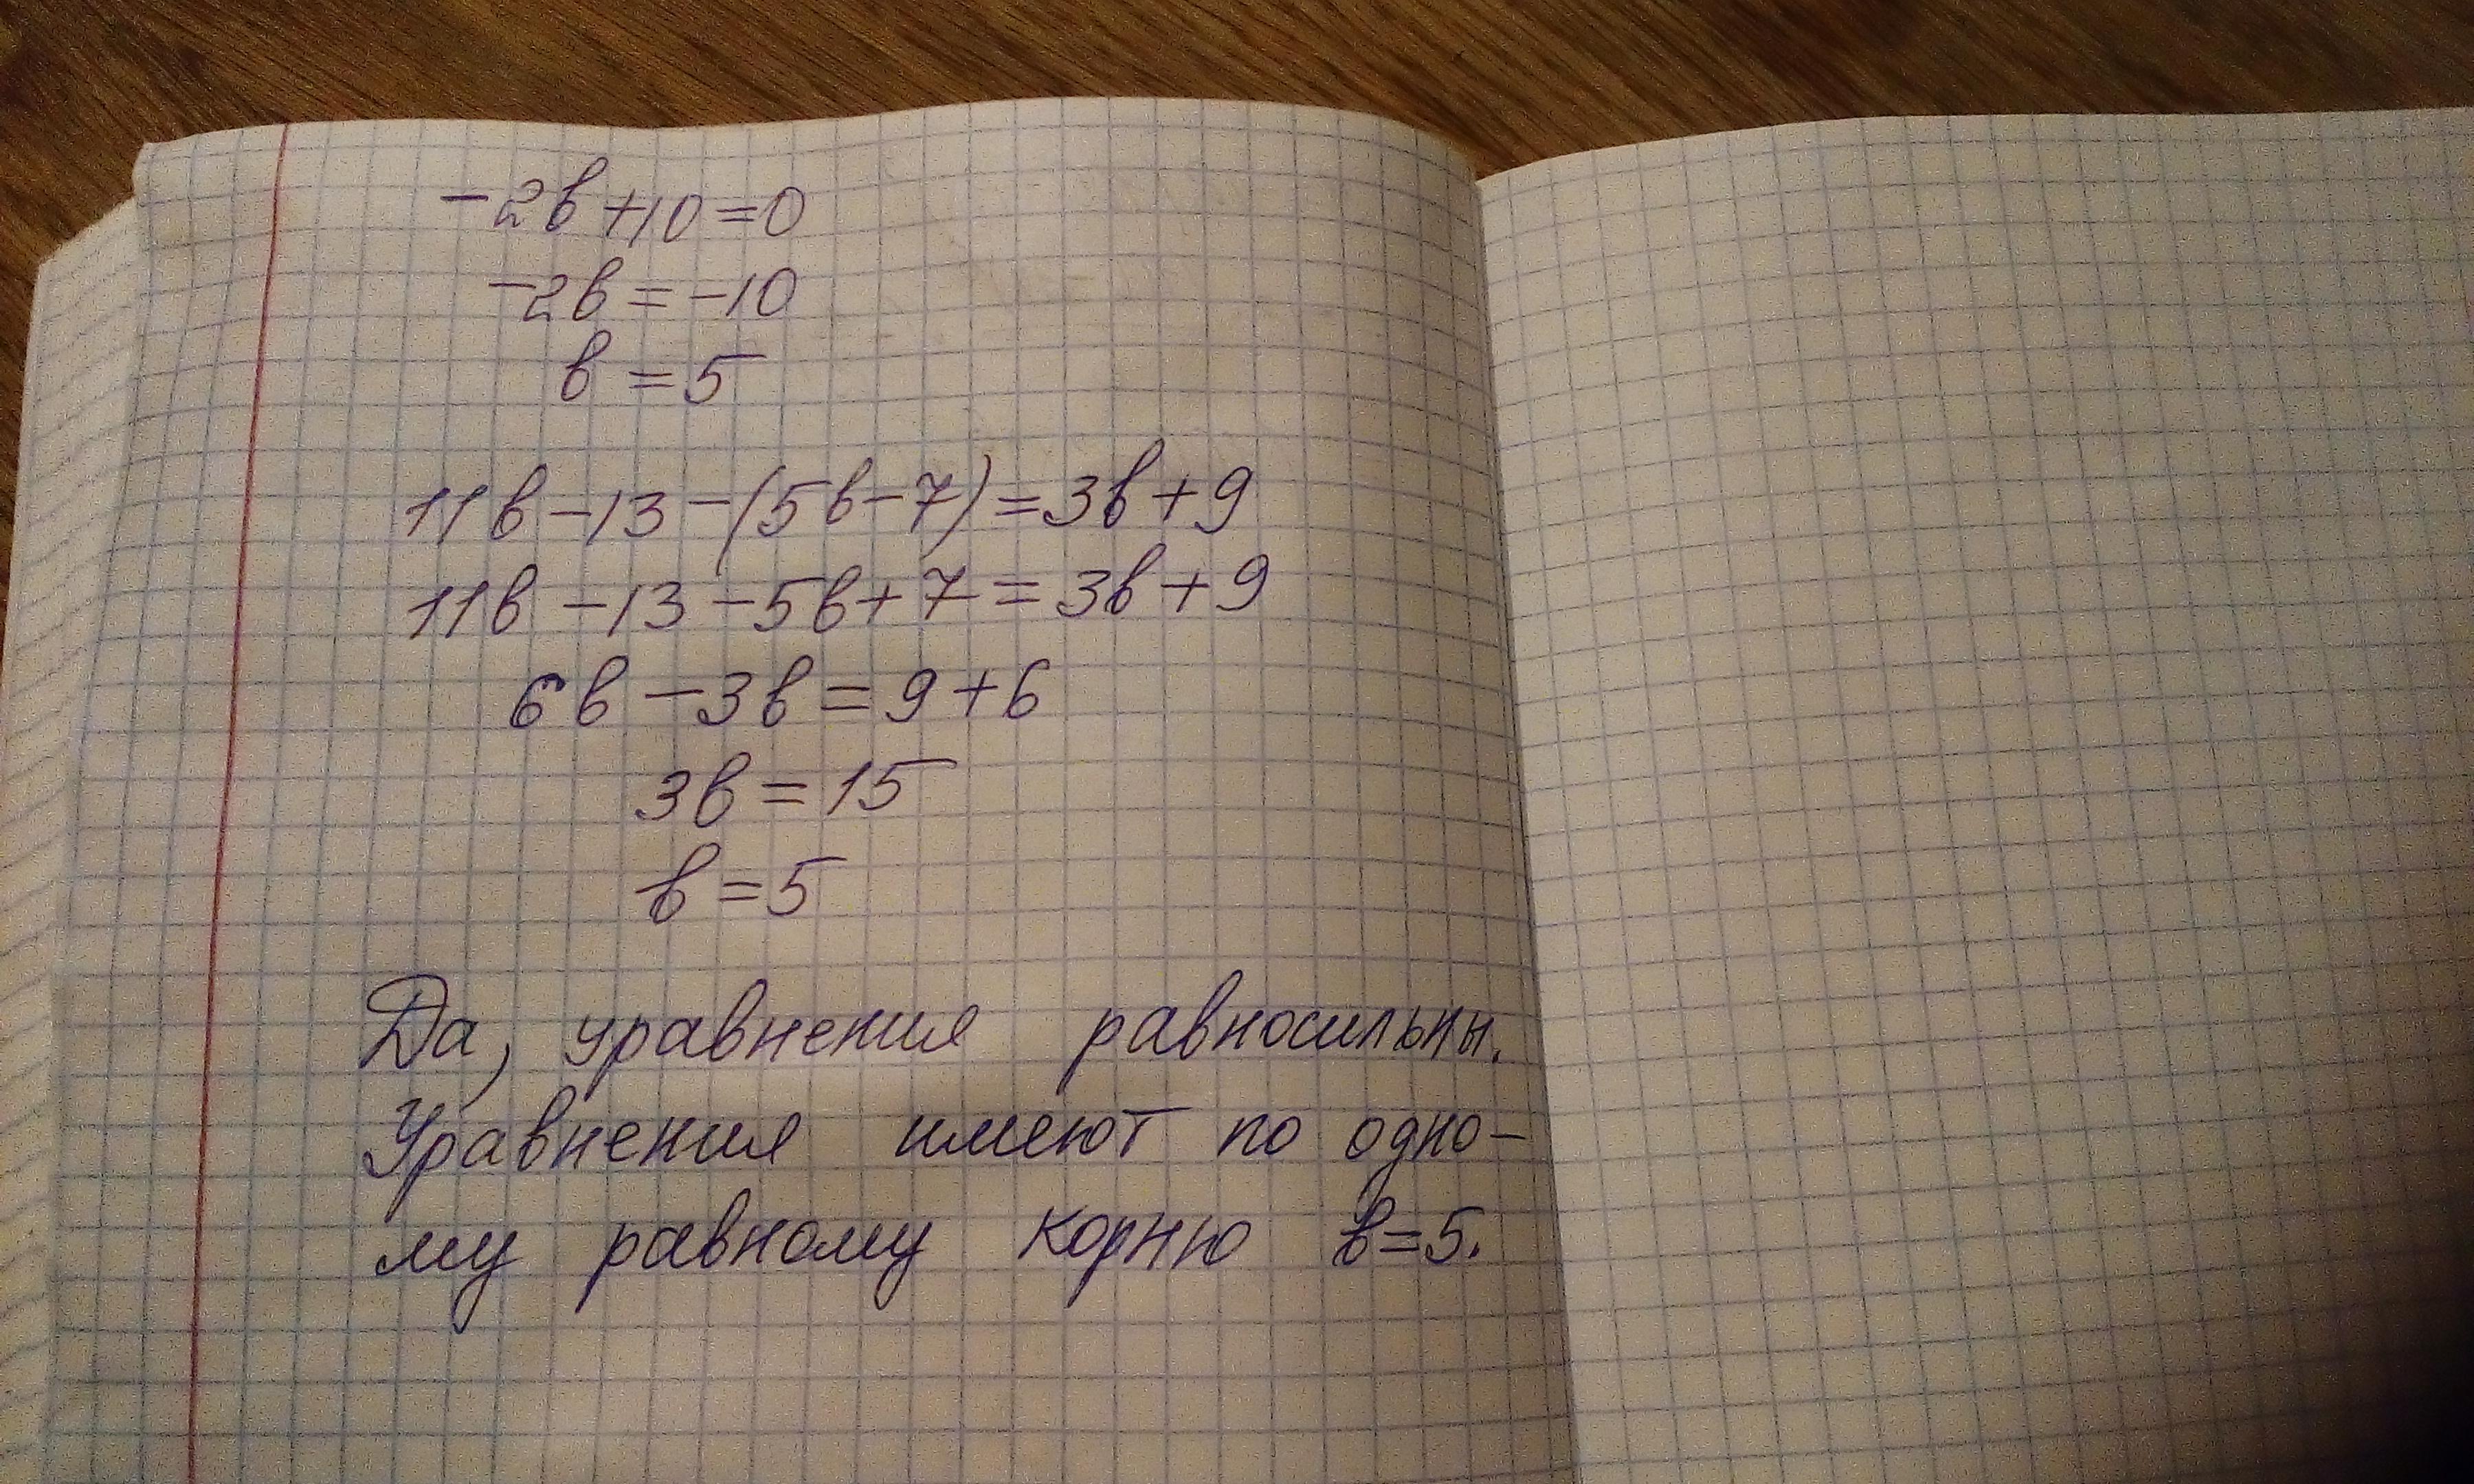 -2в+10=0
-2в=-10
в=5
11в-13-(5в-7)=3в+9
11в-13-5в+7=3в+9
6в-3в=9+6
3в=15
в=5
Да, уравнения равносильны.
Уравнения имеют по одно-
му равному корню в=5.